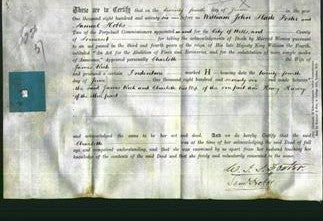 These are to Certify that on the twenty fourth day of January in the year
One thousand eight hundred and ninety six before us William John Slade Foster and
Samuel Hobbs
Two of the Perpetual Commissioners appointed in and for the City of Wells, and County
of Somerset for taking the acknowledgments of Deeds by Married Women pursuant
to an act passed in the third and fourth years of the reign of His late Majesty King William the Fourth,
intituled "An Act for the Abolition of Fines and Recoveries, and for the substitution of more simple modes
of Assurance," Appeared personally Charlotte the Wife of
James
and produced a certain Indenture marked H bearing date the twenty fourth
day of January One thousand eight hundred and ninety six and made between
the said James and Charlotte his Wife of the one part and Henry
of the other part
and acknowledged the same to be her act and deed. And we do hereby Certify that the said
Charlotte was at the time of her acknowledging the said Deed of full
age and competent understanding, and that she was examined by us apart from her husband touching her
knowledge of the contents of the said Deed and that she freely and voluntarily consented to the same.
W. J. S. Foster